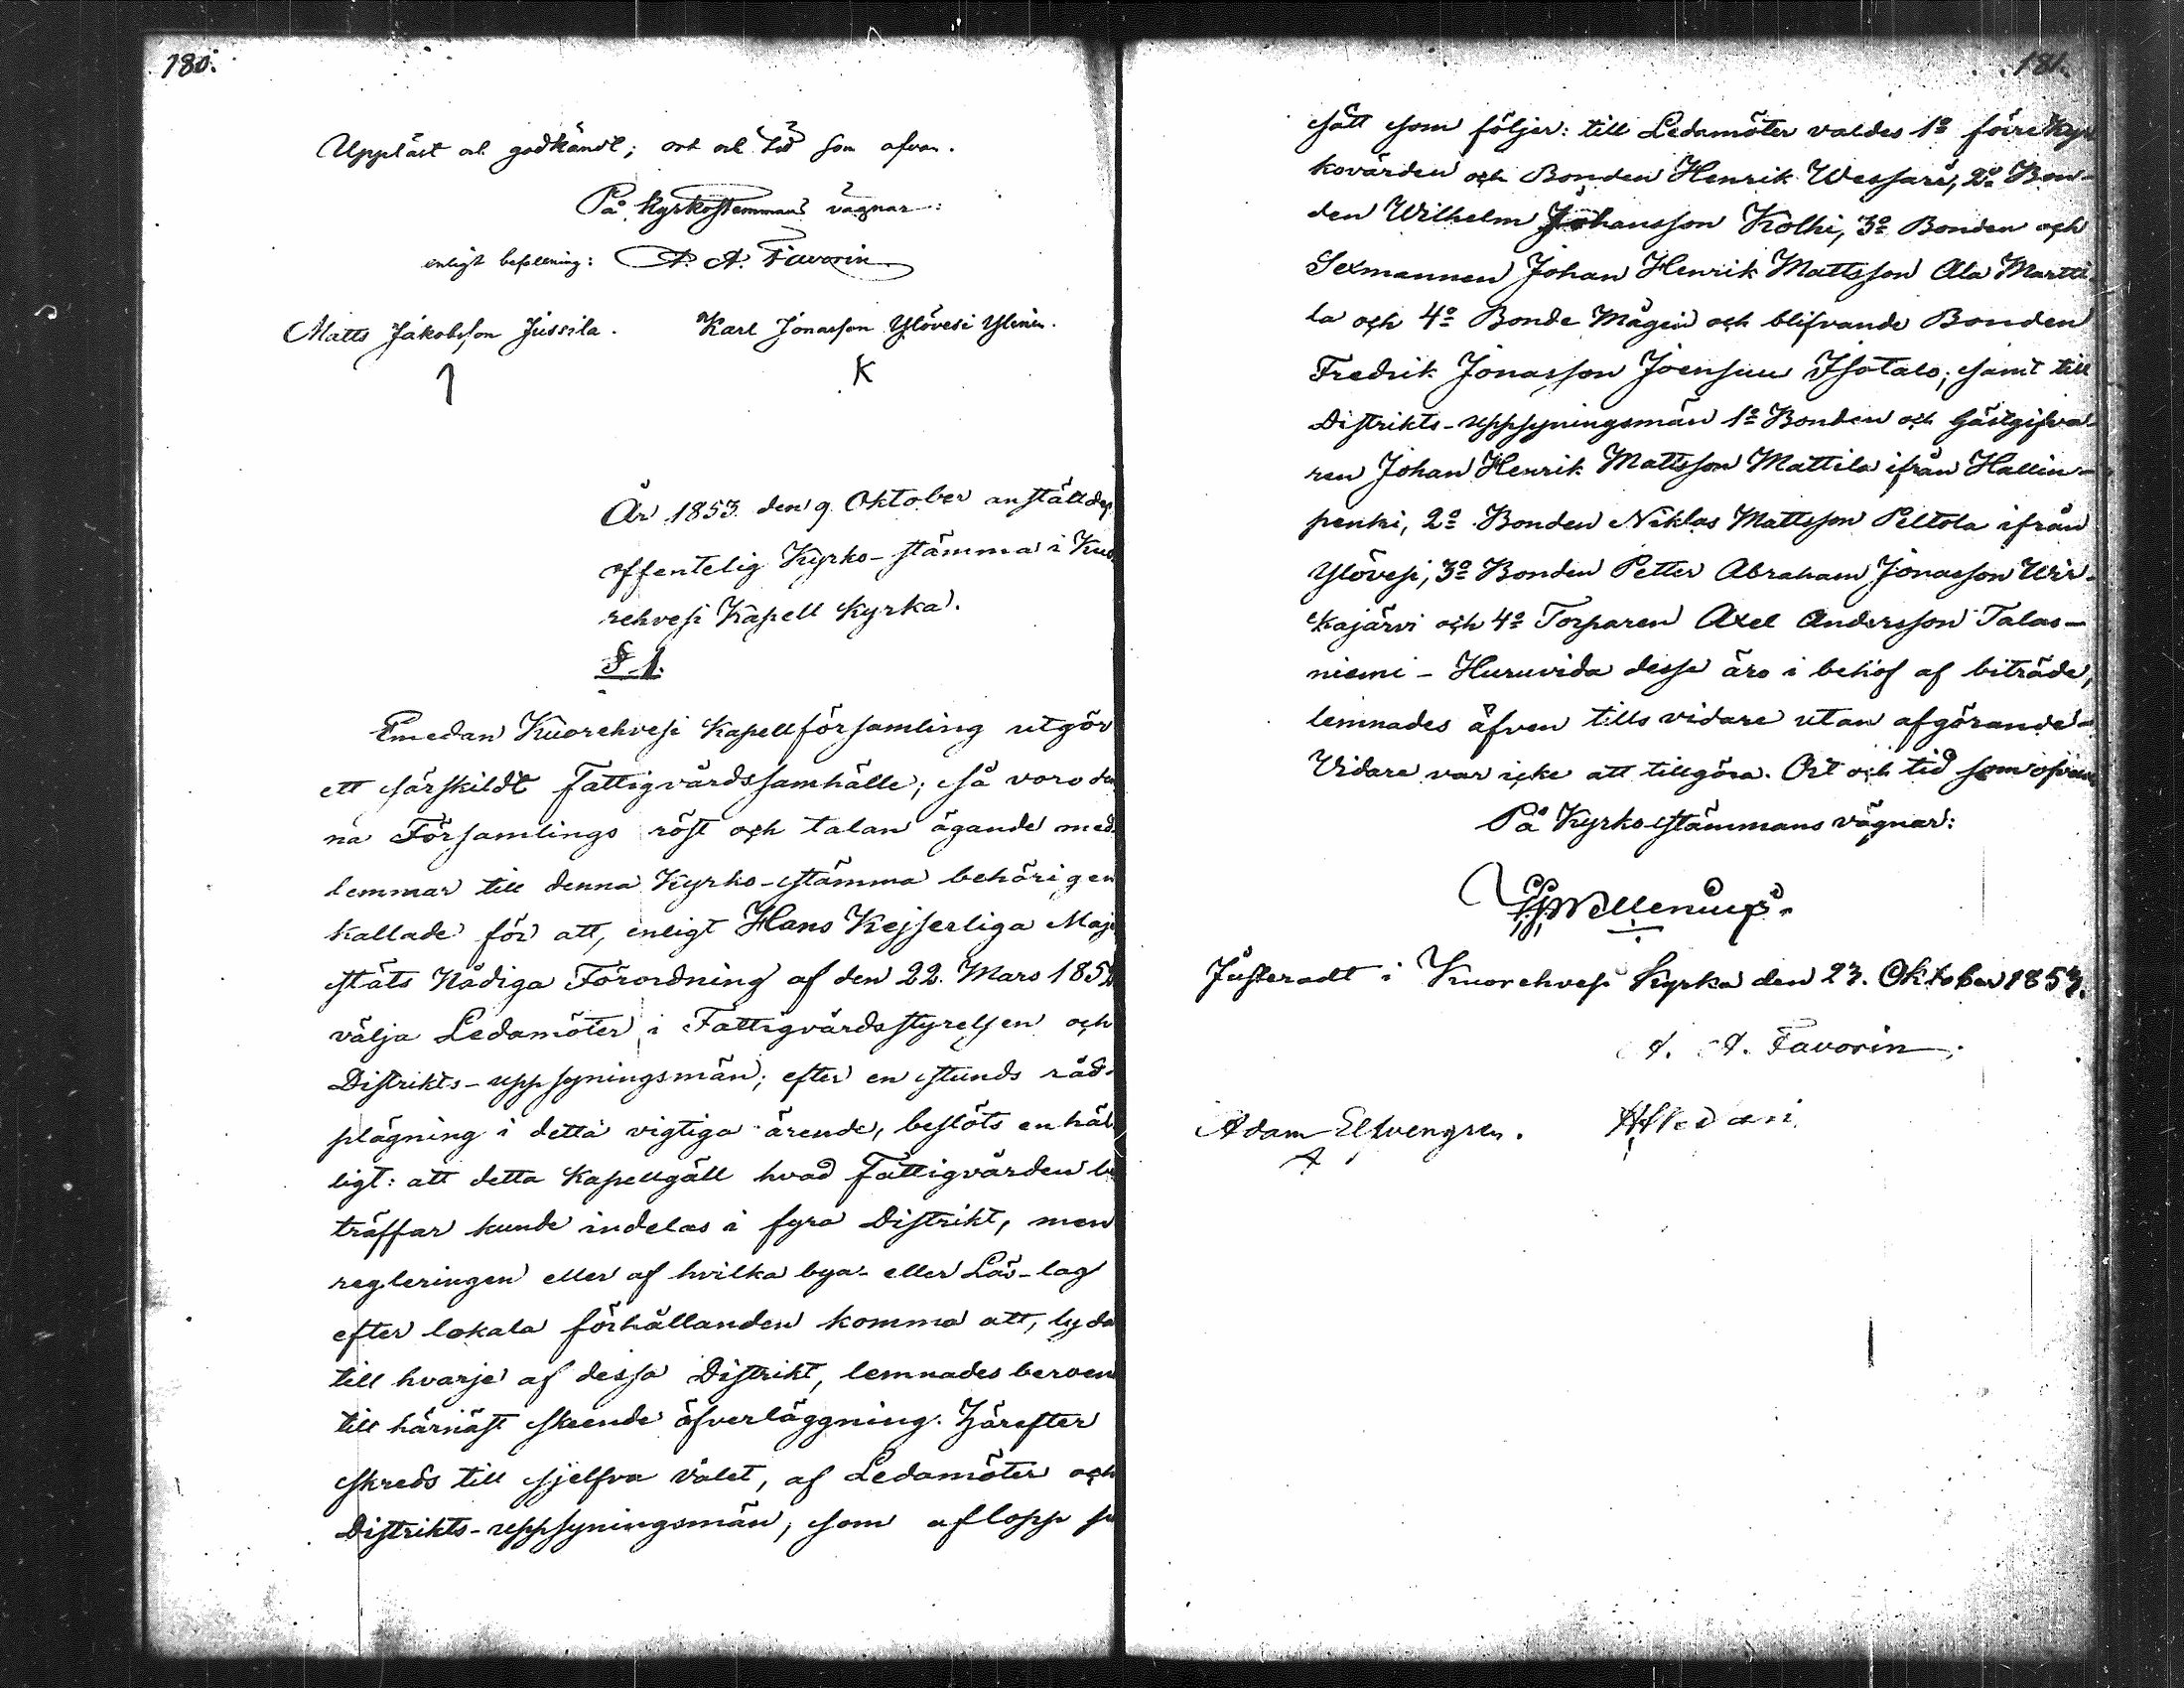 180.
Uppläst och godkändt; ort och tid som ofvan.
På Kyrkostemmans vägnar:
enligt befallning: A. A. Favorin
Matts Jakobsson Jussila. Karl Jonasson Ylövesi Ylinen.
K
År 1853 den 9 Oktober anställdes
offentelig Kyrko-stämma i Kuo
rehvesi Kapell Kyrka.
§ 1.
Emedan Kuorehvesi Kapellförsamling utgör
ett särskildt Fattigvårdssamhälle; så voro den
na Församlings röst och talan ägande med
lemmar till denna Kyrko-stämma behörigen
kallade för att, enligt Hans Kejserliga Maje
stäts Nådiga Förordning af den 22. Mars 1852
välja Ledamöter i Fattigvårdsstyrelsen och
Distrikts-uppsyningsmän; efter en stunds råd-
plägning i detta vigtiga ärende, beslöts enhäl
ligt: att detta Kapellgäll hvad Fattigvården be
träffar kunde indelas i fyra Distrikt, men
regleringen eller af hvilka bya- eller Läs-lag
efter lokala förhållanden komma att, lyda
till hvarje af dessa Distrikt, lemnades beroen
till härnäst skeende öfverläggning. Härefter
skreds till sjelfva valet, af Ledamöter och
Distrikts-uppsyningsmän, som aflopp på
181.
sätt som följer: till Ledamöter valdes 1º förre Kyr
kovärden och Bonden Henrik Wessari, 2º Bon-
den Wilhelm Johansson Kolhi, 3º Bonden och
Sexmannen Johan Henrik Mattsson Ala Martti
la och 4º Bonde Mågen och blifvande Bonden
Fredrik Jonasson Joensuu Isotalo; samt till
Distrikts-uppsyningsmän 1º Bonden och Gästgifva
ren Johan Henrik Mattsson Mattila ifrån Hallin-
penki, 2º Bonden Niklas Mattsson Peltola ifrån
Ylövesi, 3º Bonden Petter Abraham Jonasson Wir-
kajärvi och 4º Torparen Axel Andersson Talas-
niemi - Huruvida desse äro i behof af biträde,
lemnades äfven tills vidare utan afgörande.
Vidare var icke att tillgöra. Ort och tid som ofvan
På Kyrko-stämmans vägnar:
Justeradt i Kuorehvesi Kyrka den 23. Oktober 1853.
A. A. Favorin.
Adam Elfvengren.
A